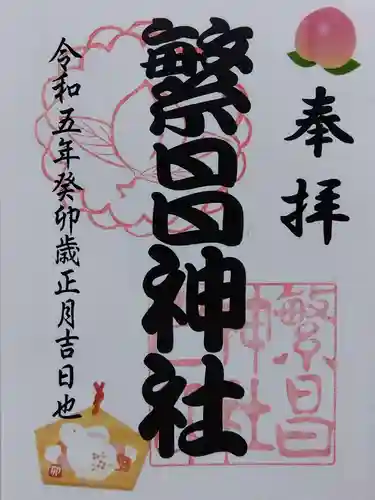 奉拝
繁昌神社
令和五年癸卯歳正月吉日也
繁昌
神社
卯